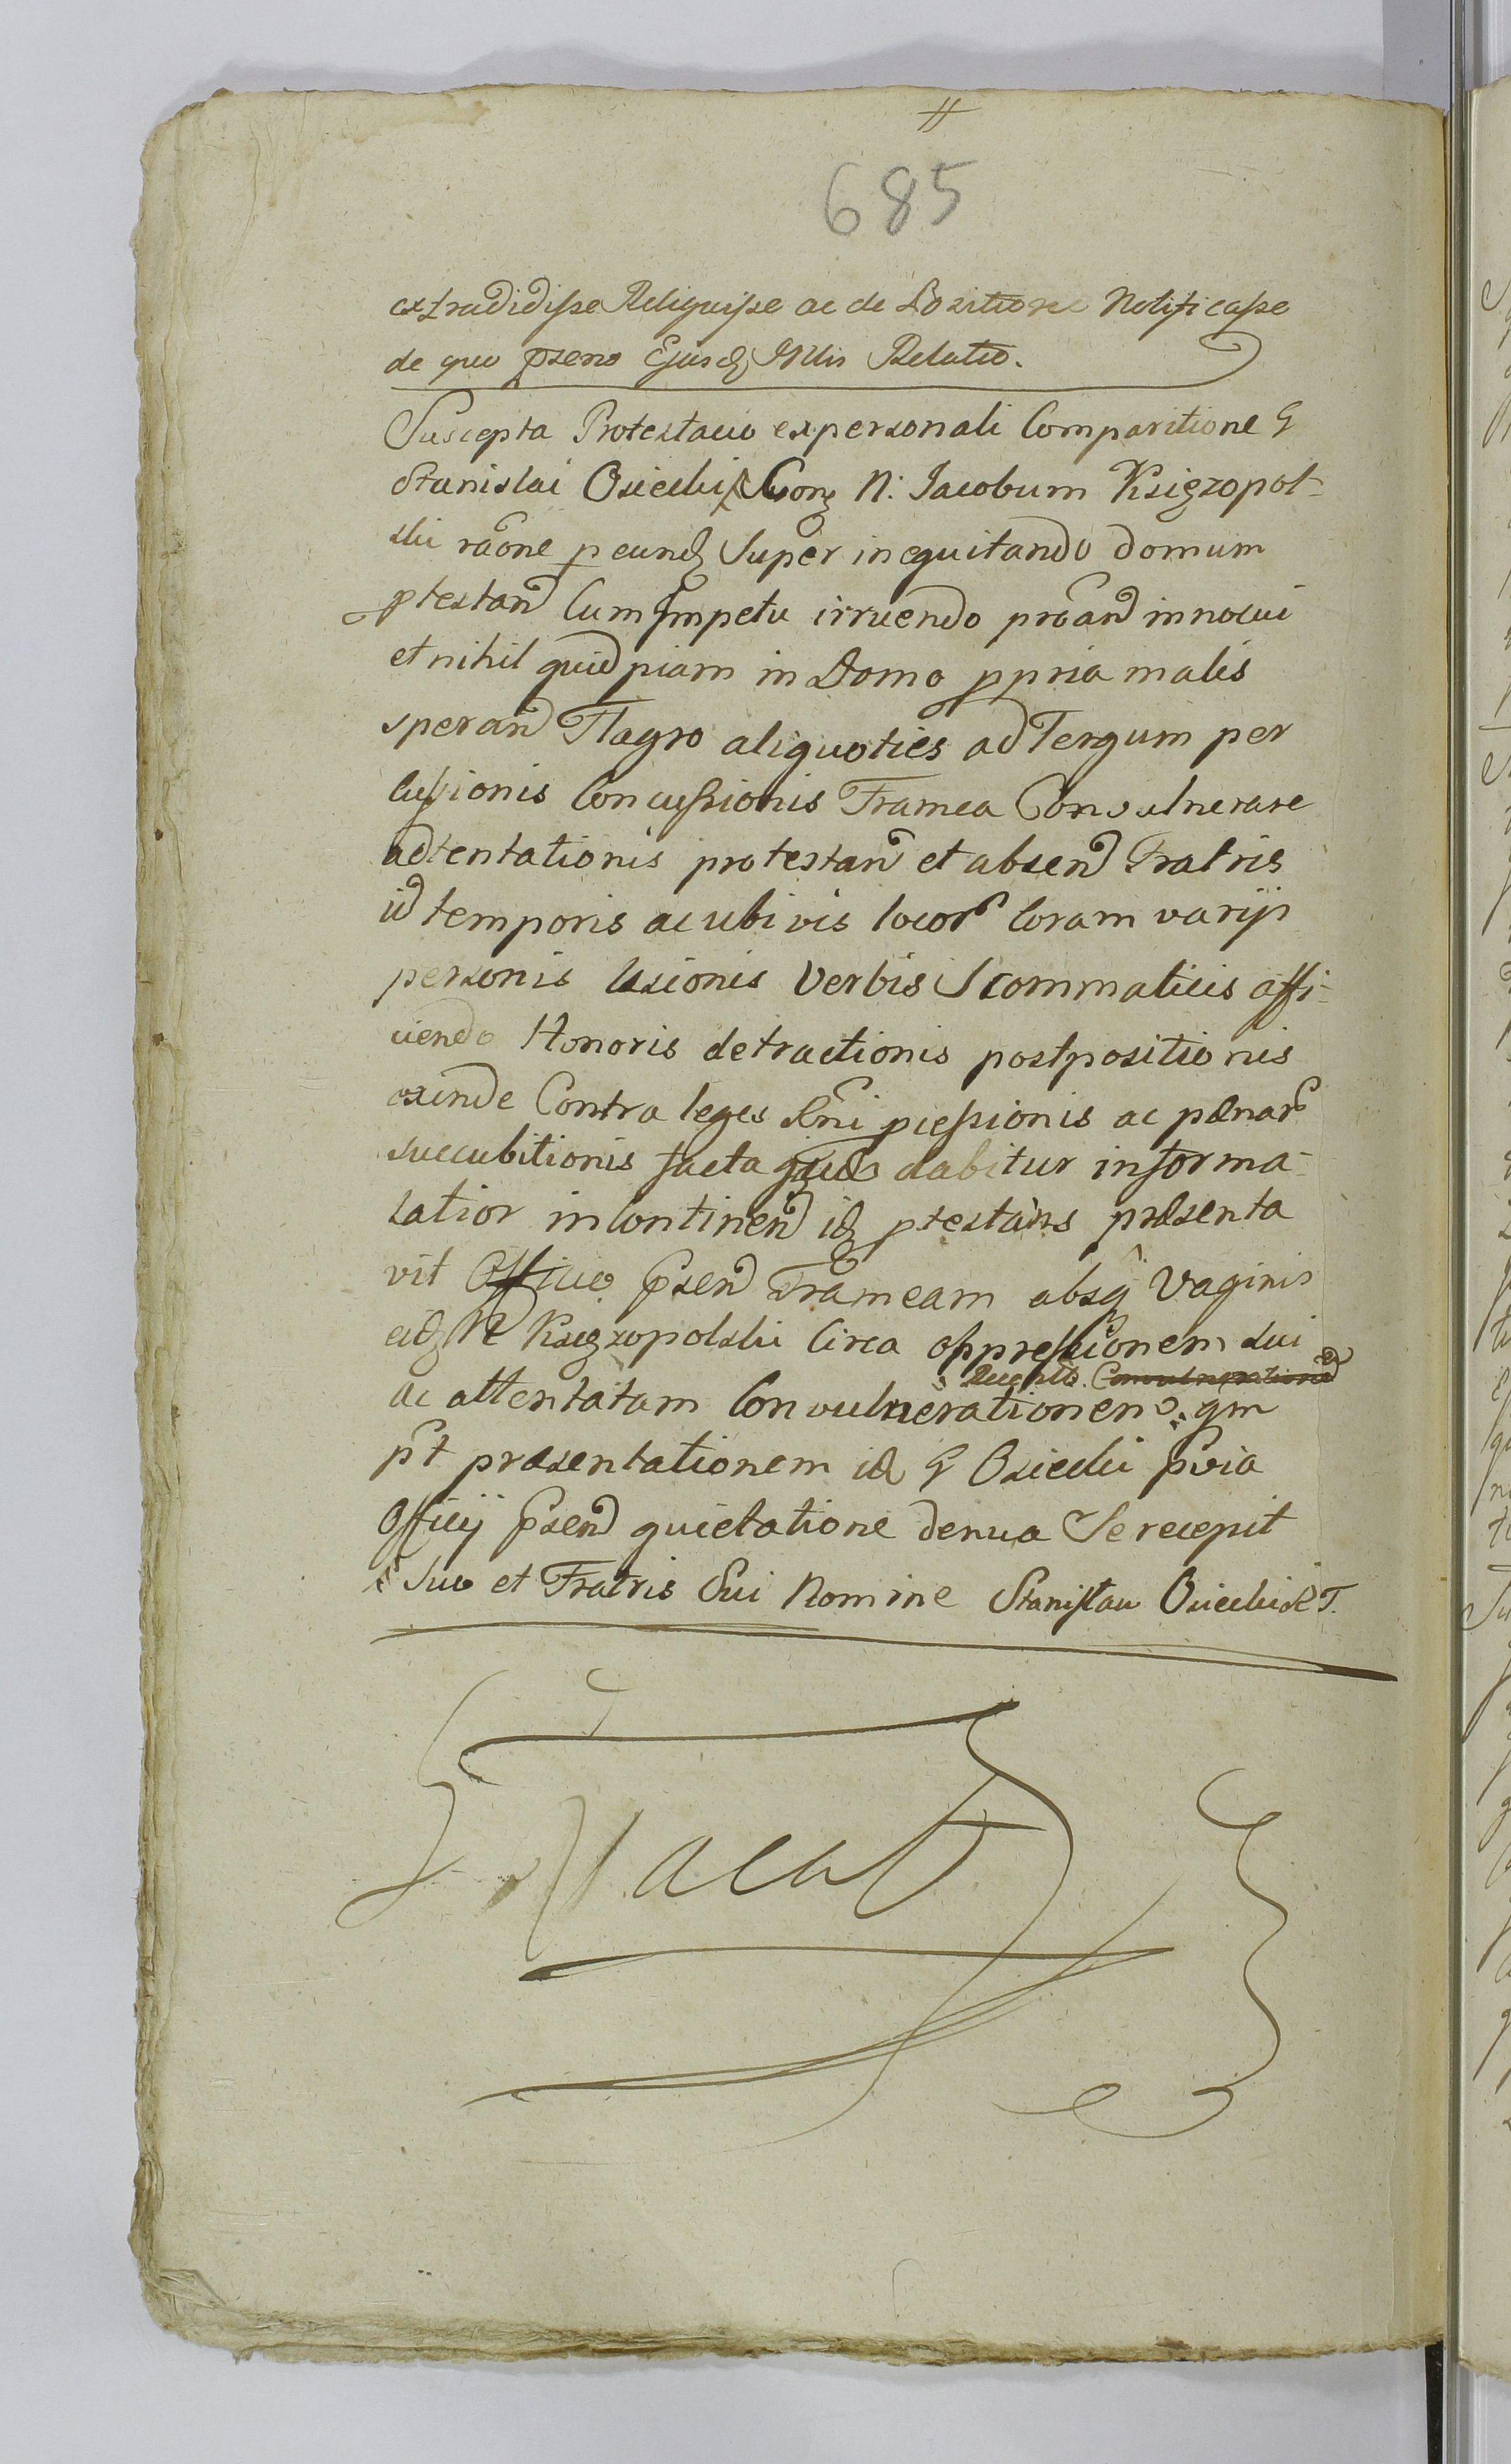 #
685
extradidisse Reliquisse ac de Positione Notificasse
de quo pseno Ejusd Mlis Relatio.
Suscepta Protestacio ex personali Comparitione G
Stanislai Osiecki Con N: Jacobum Księzopol-
ski raone p eund Super inequitando domum
ptestan Cum Impetu irruendo proand innocui
et nihil quidpiam in Domo ppria malis
speran Flagro aliquoties ad Tergum per
cussionis Concussionis Framea Convulnerare
adtentationis protestan et absen Fratris
id temporis ac ubivis locor Coram varijs
personis lesionis Verbis Scommaticis affi-
ciendo Honoris detractionis postpositionis
exinde Contra leges Rni piessionis ac pænar
succubitionis facta dabitur informa-
tatior in continen id ptestans præsenta
vit Officio psen Frameam absq Vaginis
eid N Księzopolski Circa oppressionem sui
Convulneration
ac attentatam Convulnerationem qm
pt præsentationem id G Osiecki pvia
Officij psen quietatione denuo Se recepit
Suo et Fratris Sui Nomine Stanislaw Osiecki R T.
Vacat